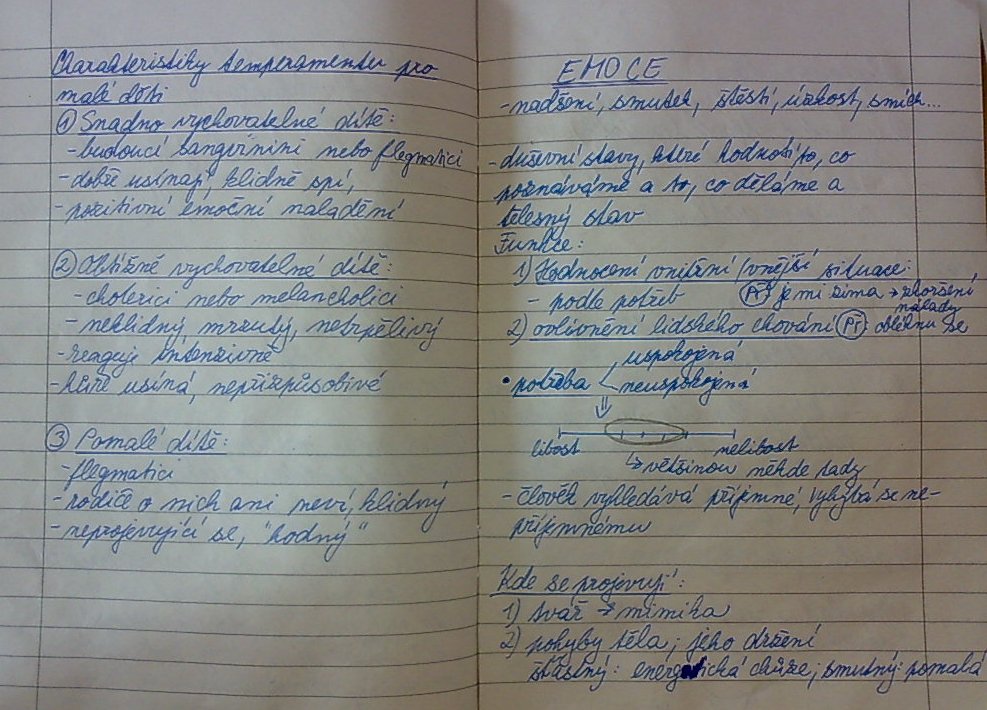 Charakteristiky temperamentu pro
malé děti
① Snadno vychovatelné dítě:
- budoucí sangvinini nebo flegmatici
- dobře usínají, klidně spí,
- pozitivní emoční naladění
② Obtížně vychovatelné dítě:
- cholerici nebo melancholici
- neklidný, mrzutý, netrpělivý
- reaguje intenzivně
- hůře usíná, nepřizpůsobivé
③ Pomalé dítě:
- flegmatici
- rodiče o nich ani neví, klidný
- neprojevující se, "hodný"
EMOCE
- nadšení, smutek, štěstí, úzkost, smích...
- duševní stavy, které hodnotí to, co
poznáváme a to, co děláme a
tělesný stav
Funkce:
1) Hodnocení vnitřní/vnější situace:
- podle potřeb Př je mi zima → zhoršení
nálady
2) ovlivnění lidského chování Př obléknu se
• potřeba
uspokojená
neuspokojená
⇓
libost nelibost
↳ většinou někde tady
- člověk vyhledává příjemné, vyhýbá se ne-
příjemnému
Kde se projevují:
1) tvář → mimika
2) pohyby těla; jeho držení
šťastný: energetická chůze; smutný: pomalá